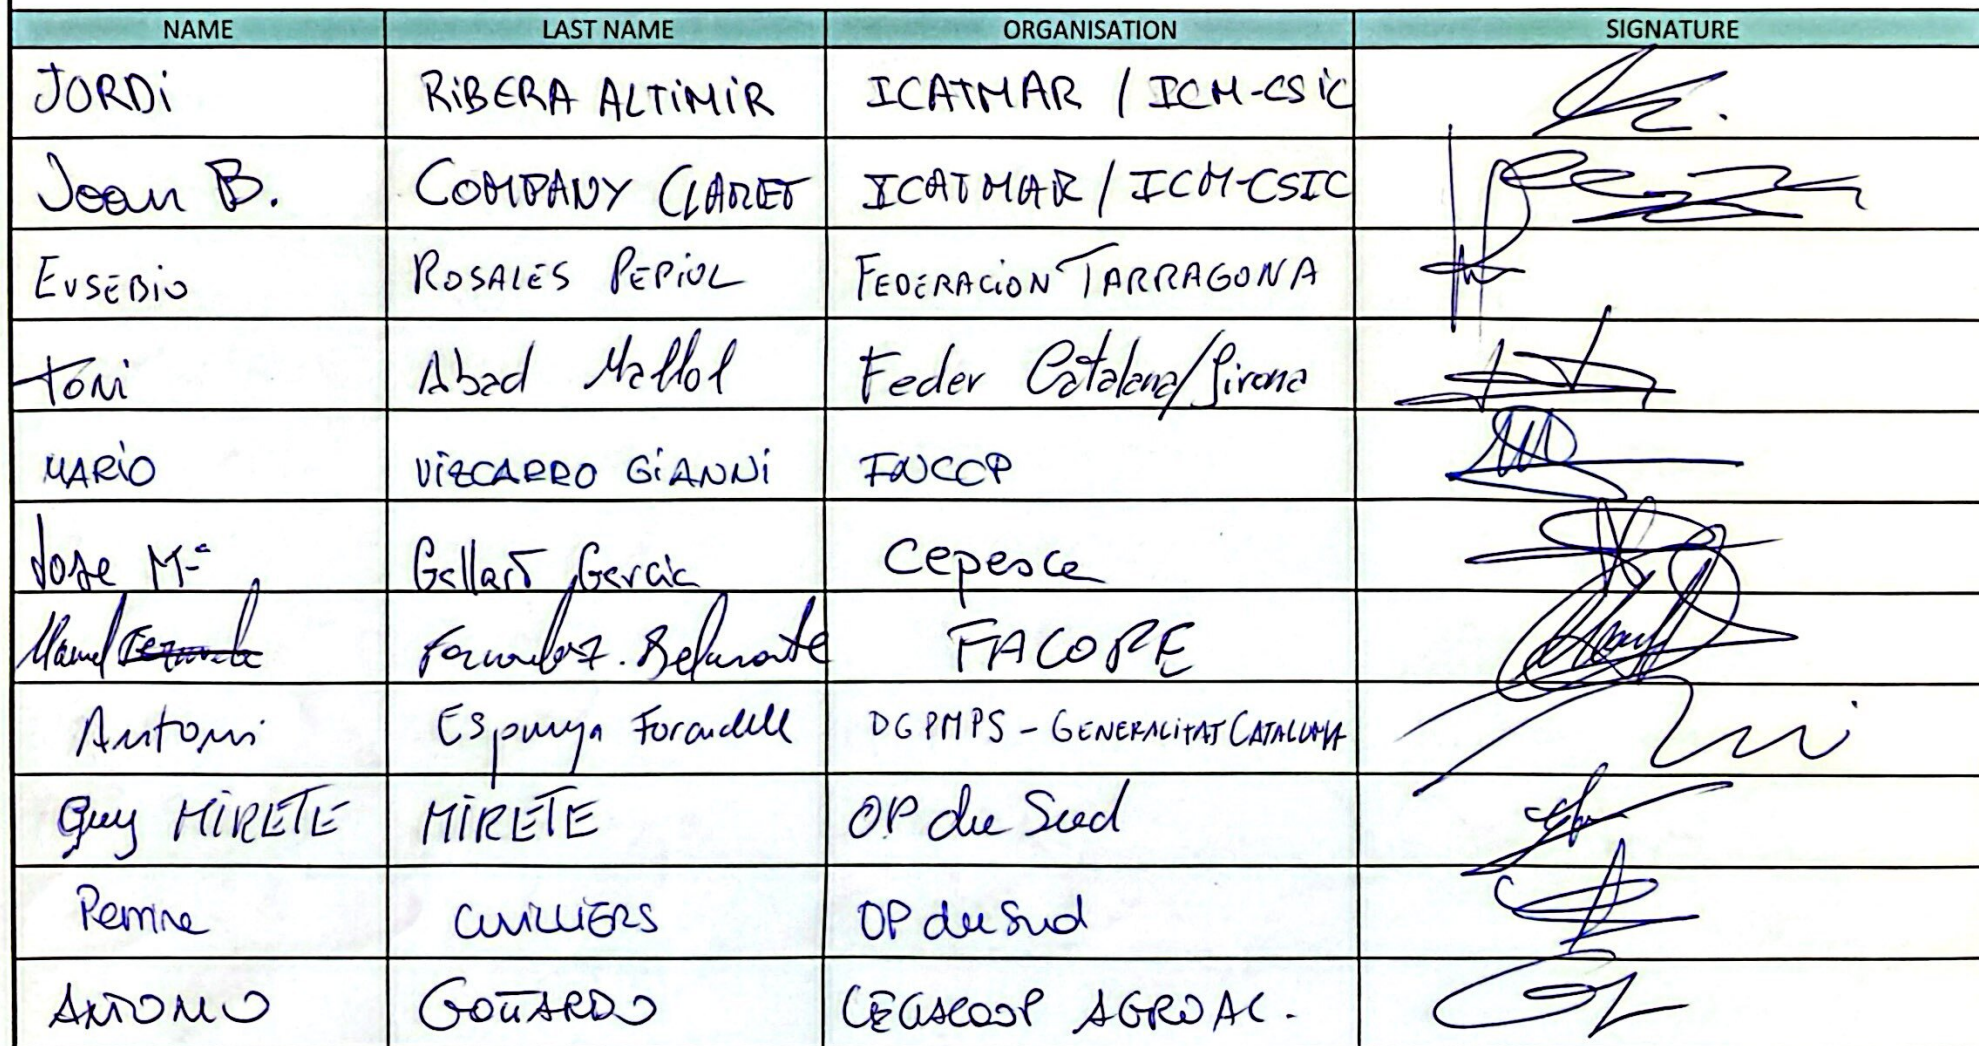 NAME LAST NAME ORGANISATION SIGNATURE
JORDi RiBERA ALTiMiR ICATMAR / ICM-CSiC
Joan B. COMPANY CLARET ICATMAR / ICM-CSIC
EUSEBio ROSALES PEPiOL FEDERACiON TARRAGONA
Toni Abad Mallol Feder Catalana/Girona
MARiO ViZCARRO GiANNi FNCCP
Jose Mª Gallart Garcia Cepesca
Manuel Fernandez. Belmonte FACOPE
Antoni Espunya Forcadell DGPMPS - GENERALiTAT CATALUNYA
Guy MiRETE MiRETE OP du Sud
Perrine CUViLLiERS OP du Sud
ANTONIO GOTTARDO LEGACOOP AGROAL.